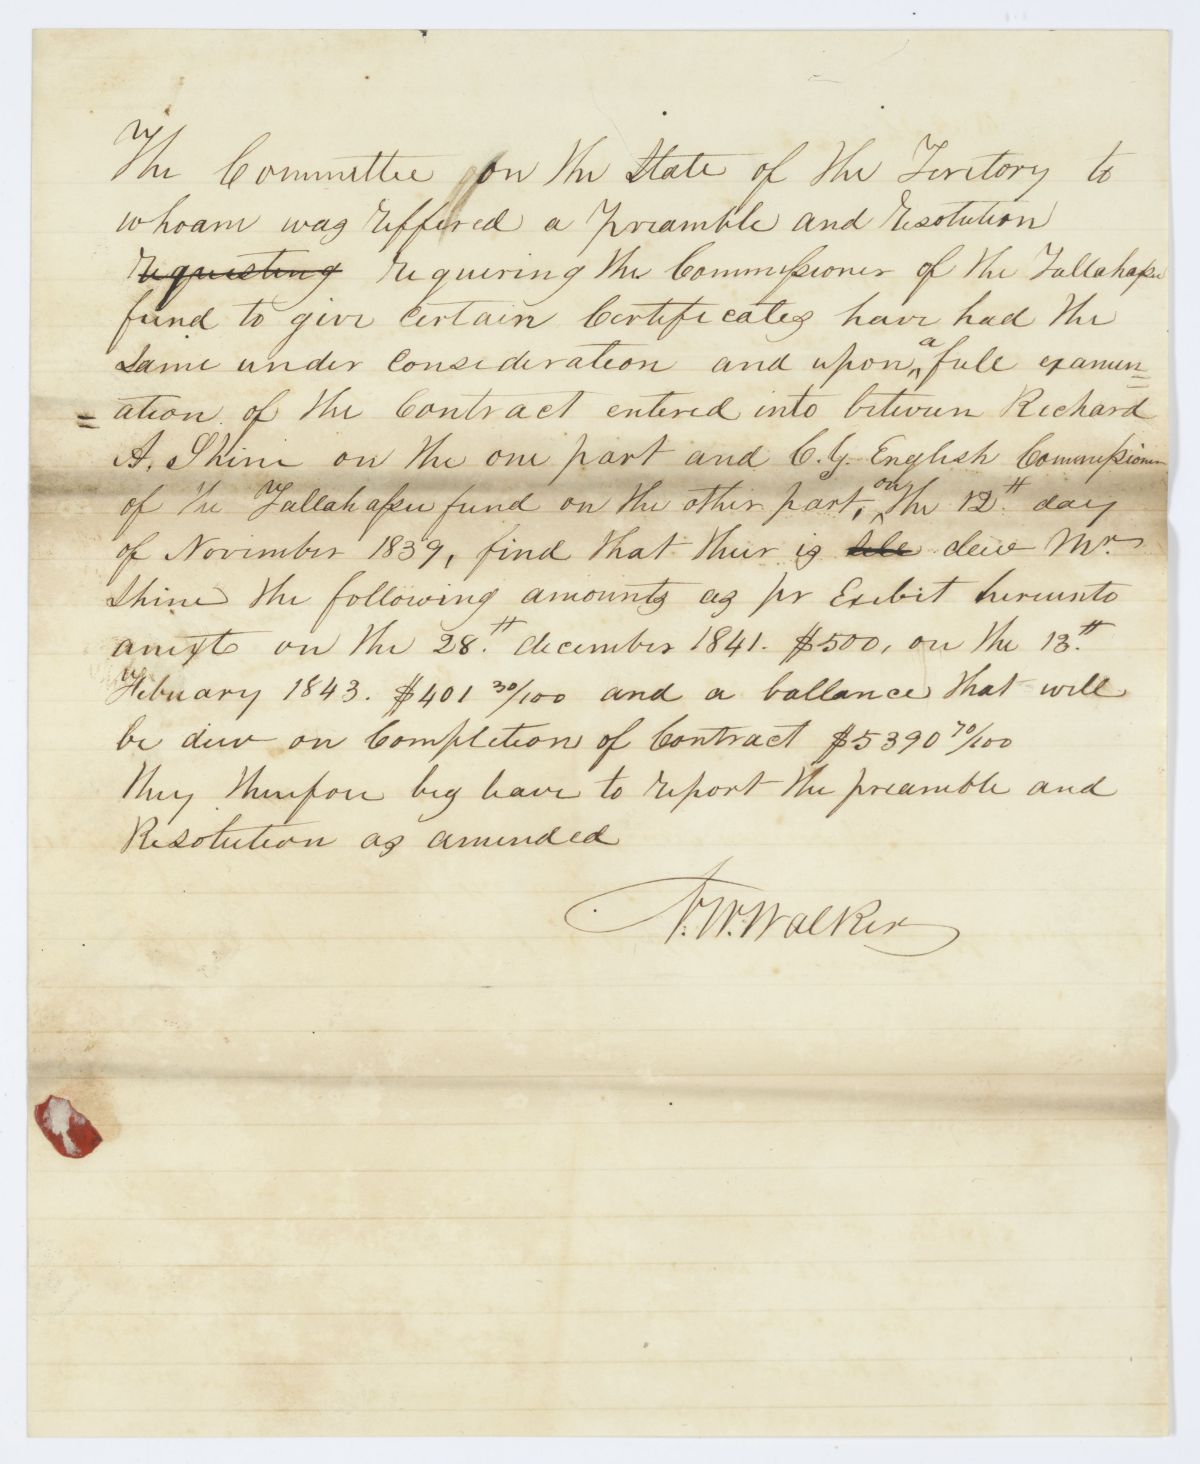 The Committee on the State of the Teritory to
whoam was reffered a preamble and resolution
requesting requering the Commissioner of the Tallahassee
fund to give certain Certificates have had the
same under consideration and upon a full examin=
=ation of the Contract entered into between Richard
A. Shine on the one part and C. G. English Commissioner
of the Tallahassee fund on the other part, on the 12th day
of November 1839, find that their is due Mr.
Shine the following amounts as pr Exibit hereunto
anext on the 28th december 1841. $500, on the 13th
Febuary 1843. $401 30/100 and a ballance that will
be due on Completion of Contract $5390 70/100
they therefore beg leave to report the preamble and
Resolution as amended
W. Walker